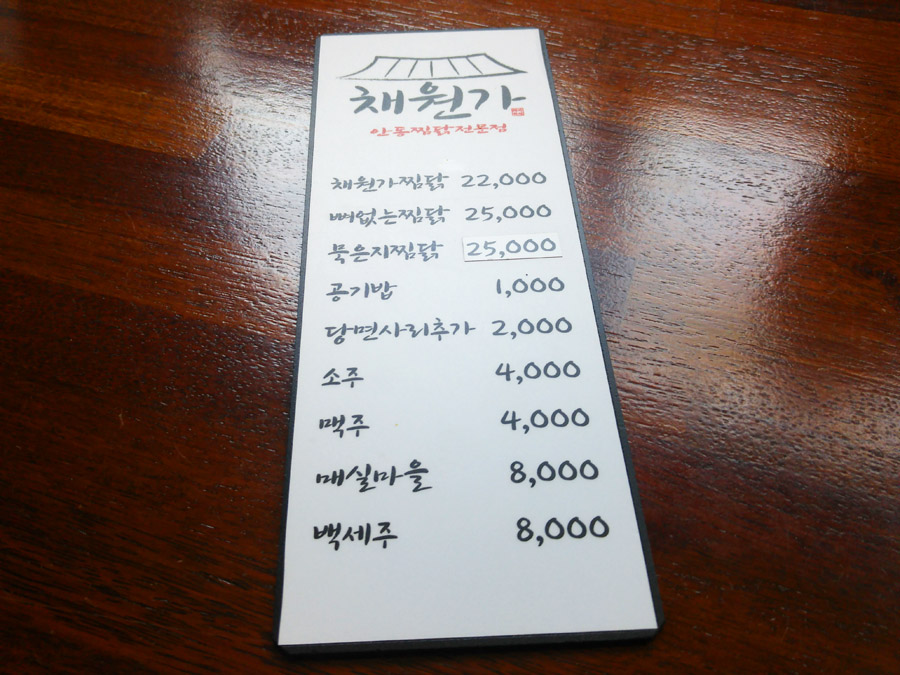 채원가
안동찜닭전문점
채원가찜닭 22,000
뼈없는찜닭 25,000
묵은지찜닭 25,000
공기밥 1,000
당면사리추가 2,000
소주 4,000
맥주 4,000
매실마을 8,000
백세주 8,000